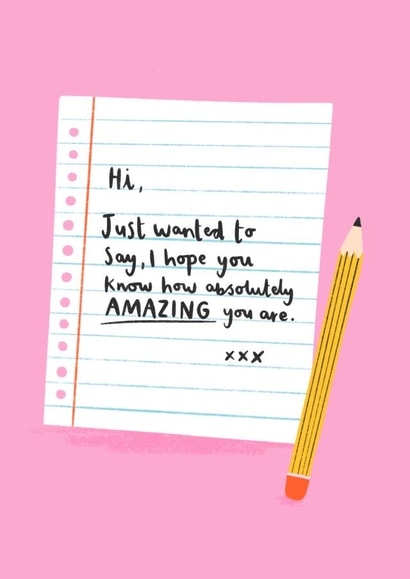 Hi,
Just wanted to
say, I hope you
know how absolutely
AMAZING you are.
xxx